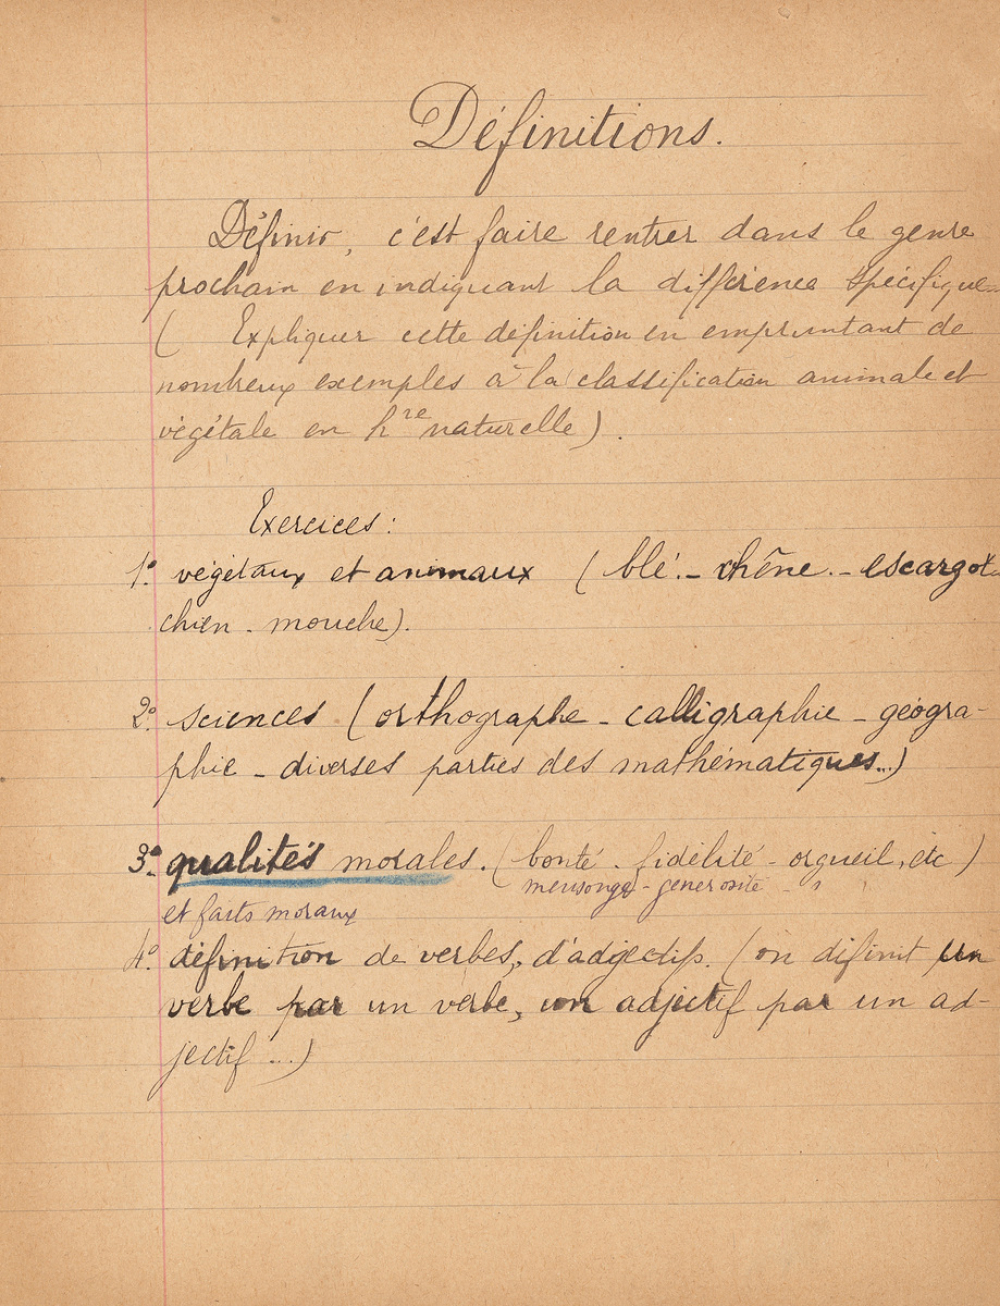 Définitions.
Définir, c'est faire rentrer dans le genre
prochain en indiquant la différence spécifique
( Expliquer cette définition en empruntant de
nombreux exemples à la classification animale et
végétale en hre naturelle).
Exercices :
1º. végétaux et animaux ( blé. - chêne. - escargot -
chien - mouche).
2º. sciences (orthographe - calligraphie - géogra-
phie - diverses parties des mathématiques...)
3º. qualités morales. ( bonté - fidélité - orgueil, etc )
mensonge - générosité -
et faits moraux
4º. définition de verbes, d'adjectifs. ( on définit un
verbe par un verbe, un adjectif par un ad-
jectif ...)